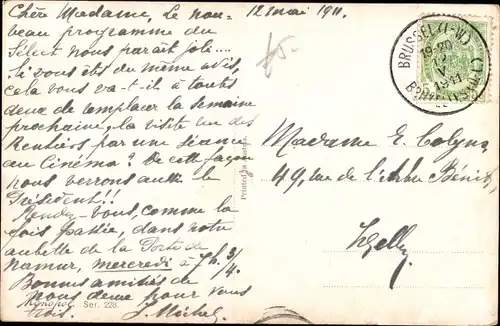 12 mai 1911.
Chère Madame, Le nou-
beau programme du
Select nous paraît joli....
Si vous êts du même avis,
cela vous va-t-il à toutes
deux de remplacer la semaine
prochaine, la visite des
Rentiers par une séance
au Cinéma? De cette façon
nous verrons aussi le
Président!!
Rendez-vous, comme la
fois passée, dans votre
aubette de la Porte de
Namur, mercredi à 7h. 3/4.
Bonnes amitiés de
nous deux pour vous
trois. J. Michel
Ser. 228.
Printed in
BRUSSEL (1-W.)
19-20
V
1911
Madame E. Colyns
49, rue de l'Arbre Bénit,
Ixelles